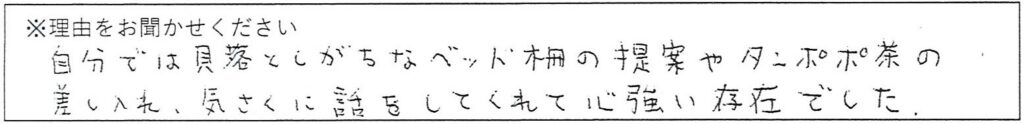 ※理由をお聞かせください
自分では見落としがちなベッド柵の提案やタンポポ茶の
差し入れ、気さくに話をしてくれて心強い存在でした.